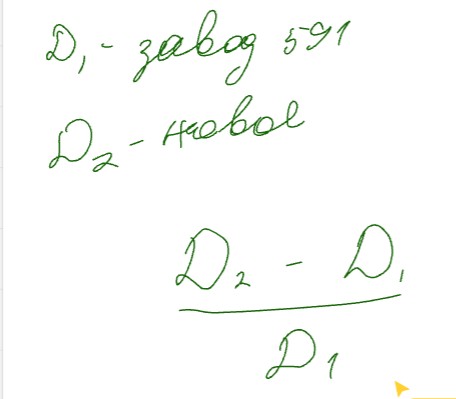 D₁ - завод 591
D₂ - новое
D₂ - D₁
D₁